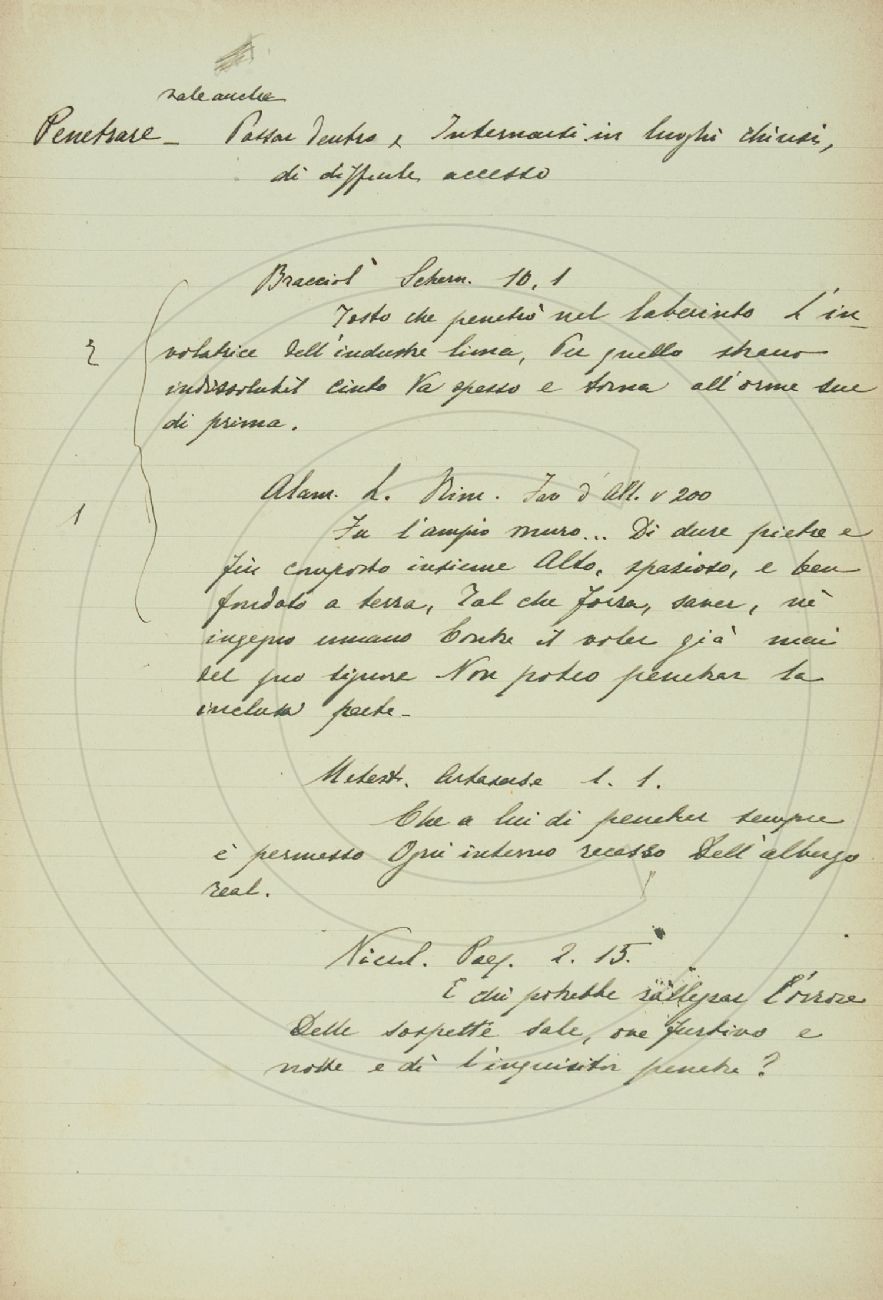 vale anche
Penetrare – Passar dentro, Internarsi in luoghi chiusi,
di difficile accesso
Bracciol. Schern. 10. 1
Tosto che penetrò nel laberinto L'in-
2 volatrice dell'industre lima, Per quello strano
indissolubil cinto Va spesso e torna all'orme sue
di prima.
Alam. L. Rim. Fav d' Atl. v 200
1
Fu l'ampio muro... Di dure pietre e
fin composto insieme Alto, spazioso, e ben
fondato a terra, Tal che forza, saver, nè
ingegno umano Contra il voler già mai
del suo signore Non poteo penetrar la
inclusa parte.
Metast. Artaserse 1. 1.
Che a lui di penetrar sempre
è permesso Ogni interno recesso Dell'albergo
real.
Niccol. Poes. 2. 15.
E chi potrebbe rallegrar l'orrore
Delle sospette sale, ove furtivo e
notte e dì l'inquisitor penetra?